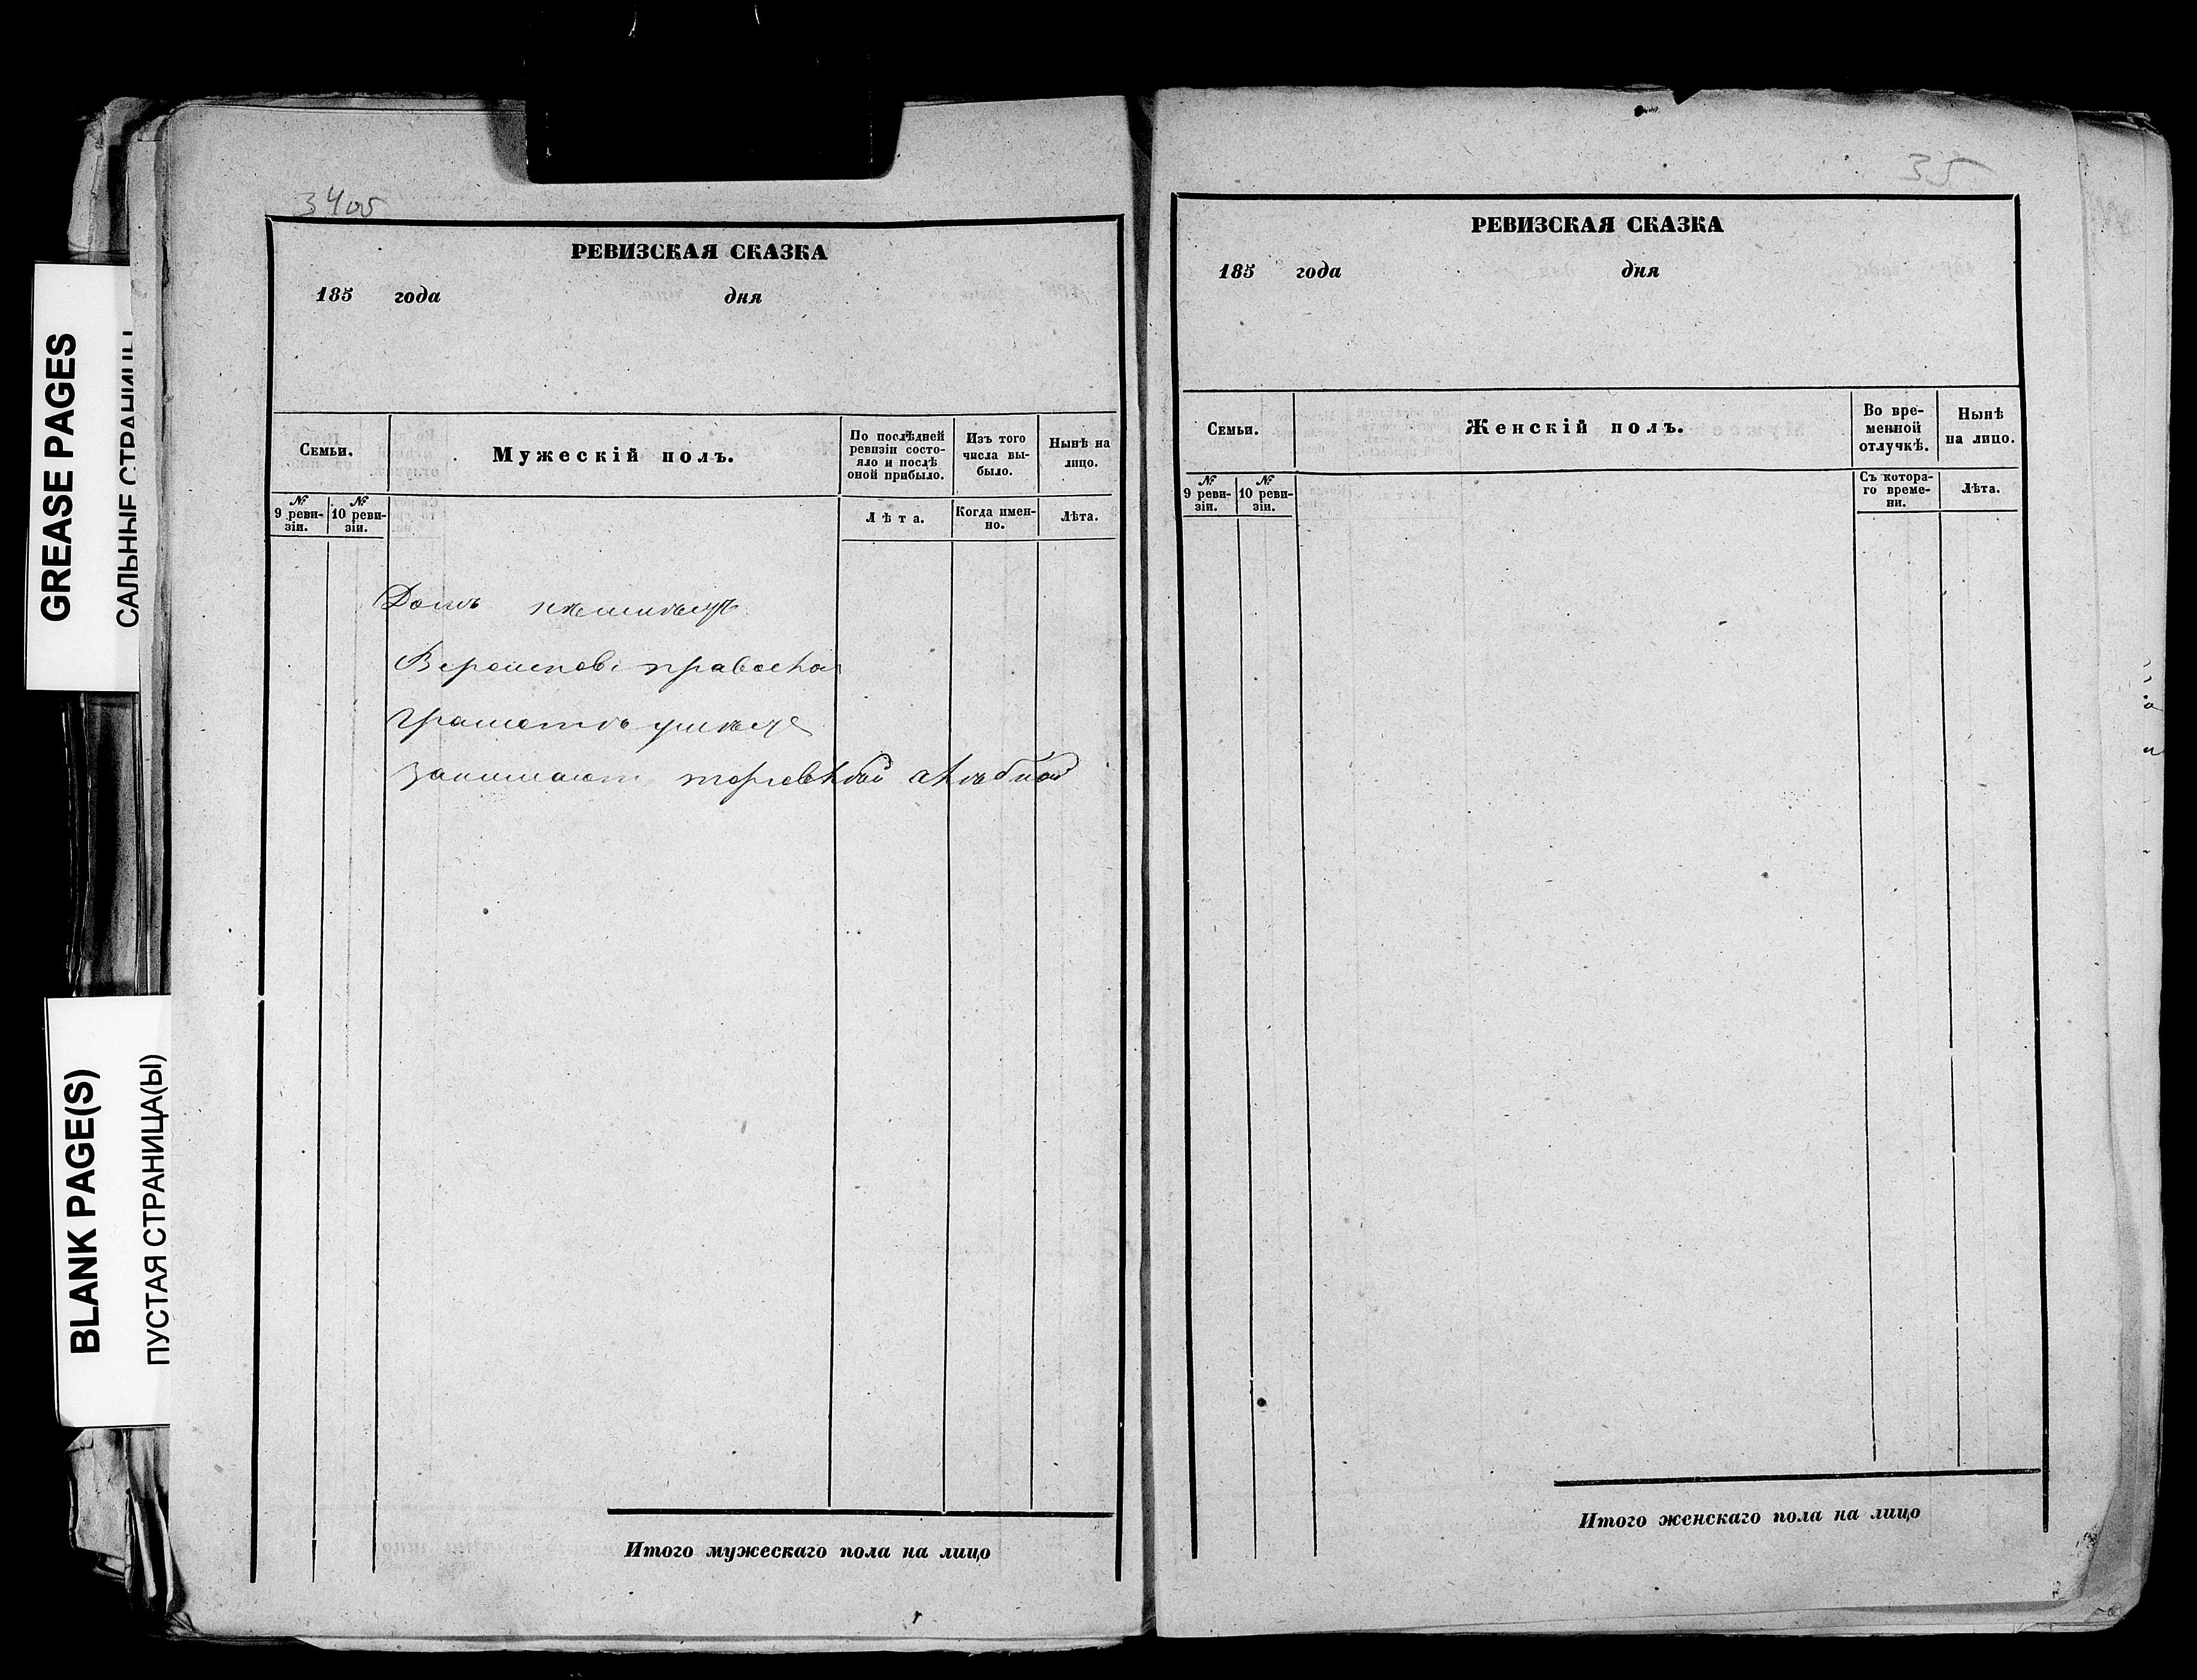 GREASE PAGES
САЛЬНЫЕ СТРАНИЦЫ
BLANK PAGE(S)
ПУСТАЯ СТРАНИЦА(Ы)
34об
РЕВИЗСКАЯ СКАЗКА
185 года дня
Семьи.
Мужескій полъ.
По послѣдней ревизіи состо-
яло и послѣ
оной прибыло.
Изъ того
числа вы-
было.
Нынѣ на
лицо.
№
9 реви-
зіи.
№
10 реви-
зіи.
Лѣта.
Когда имен-
но.
Лѣта.
Домъ
грамотѣ умѣетъ
Итого мужескаго пола на лицо
35
РЕВИЗСКАЯ СКАЗКА
185 года дня
Семьи.
Женскій полъ.
Во вре-
менной
отлучкѣ.
Нынѣ
на лицо.
№
9 реви-
зіи.
№
10 реви-
зіи.
Съ котора-
го време-
ни.
Лѣта.
Итого женскаго пола на лицо